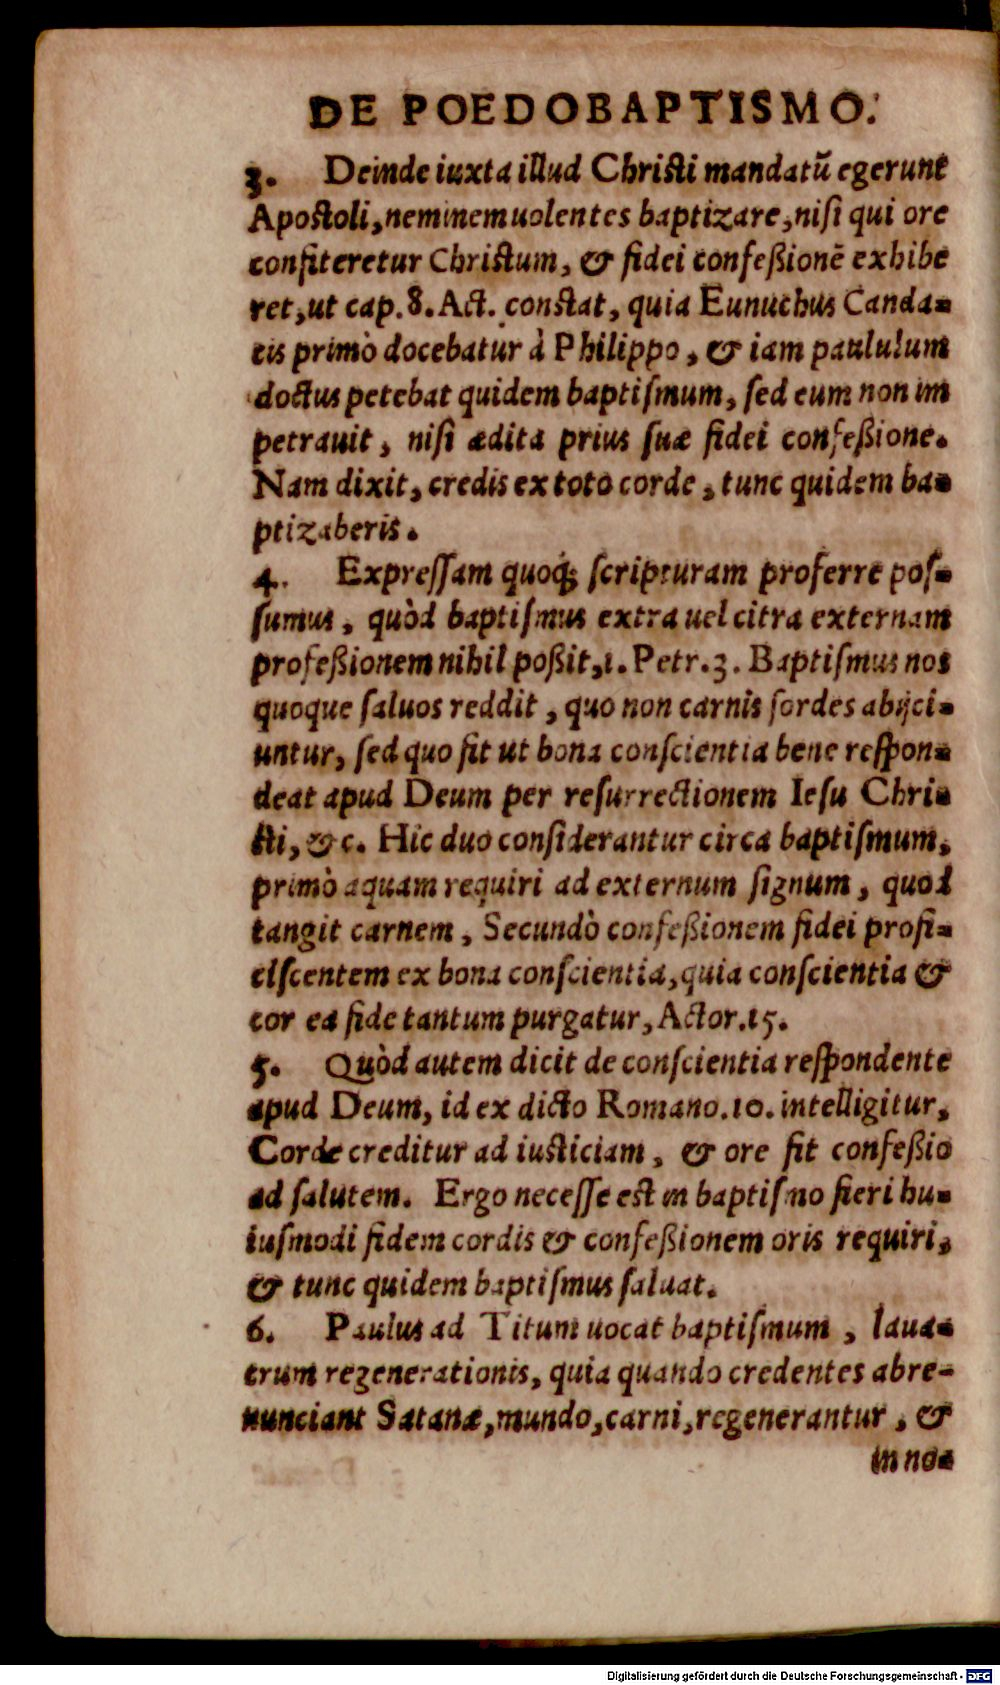 DE POEDOBAPTISMO.
3. Deinde iuxta illud Christi mandatũ egerunt
Apostoli, neminem uolentes baptizare, nisi qui ore
confiteretur Christum, & fidei confeßionẽ exhibe
ret, ut cap. 8. Act. constat, quia Eunuchus Canda=
cis primò docebatur à Philippo, & iam paululum
doctus petebat quidem baptiſmum, ſed eum non im
petrauit, niſi ædita prius ſuæ fidei confeßione.
Nam dixit, credis ex toto corde, tunc quidem ba=
ptizaberis.
4. Expreſſam quoq; ſcripturam proferre poſ=
ſumus, quòd baptiſmus extra uel citra externam
profeßionem nihil poßit, 1. Petr. 3. Baptiſmus nos
quoque ſaluos reddit, quo non carnis ſordes abijci=
untur, ſed quo fit ut bona conſcientia bene reſpon=
deat apud Deum per reſurrectionem Ieſu Chri=
sti, &c. Hic duo conſiderantur circa baptiſmum,
primò aquam requiri ad externum ſignum, quod
tangit carnem, Secundò confeßionem fidei profi=
ciſcentem ex bona conſcientia, quia conſcientia &
cor ea fide tantum purgatur, Actor. 15.
5. Quòd autem dicit de conſcientia reſpondente
apud Deum, id ex dicto Romano. 10. intelligitur,
Corde creditur ad iusticiam, & ore fit confeßio
ad ſalutem. Ergo neceſſe est in baptiſmo fieri hu=
iuſmodi fidem cordis & confeßionem oris requiri,
& tunc quidem baptiſmus ſaluat.
6. Paulus ad Titum uocat baptiſmum, laua=
crum regenerationis, quia quando credentes abre=
nunciant Satanæ, mundo, carni, regenerantur, &
in no=
Digitalisierung gefördert durch die Deutsche Forschungsgemeinschaft - DFG